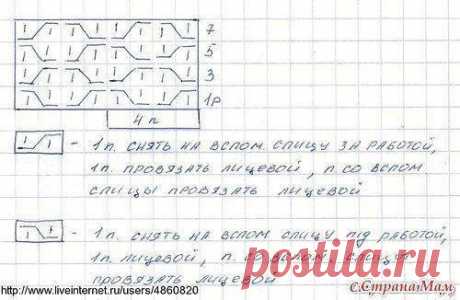 7
5
3
1р
4 п
- 1 п. снять на вспом. спицу за работой,
1 п. провязать лицевой, п. со вспом
спицы провязать лицевой
- 1 п. снять на вспом спицу під работой,
1 п. лицевой, п. со вспом. спицы
провязать лицевой
postila.ru
©СтранаМам
http://www.liveinternet.ru/users/4860820